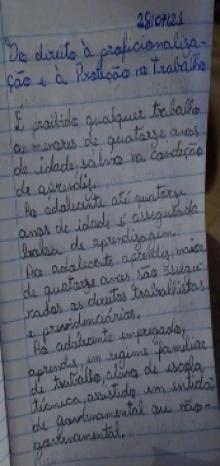 28/07/21
Do direito à proficionalisa-
ção e à Proteção no trabalho
É proibido qualquer trabalho
a menores de quatorze anos
de idade, salvo na condição
de aprendis.
Ao adolecente até quatorze
anos de idade é assegurada
bolsa de aprendisagem.
Ao adolecente aprendis, maior
de quatorze anos, são assegu-
rados os direitos trabalhistas
e previdenciários.
Ao adolecente empregado,
aprendis, em regime familiar
de trabalho, aluno de escola
técnica, assistido em entidade
de governamental ou não-
governamental.